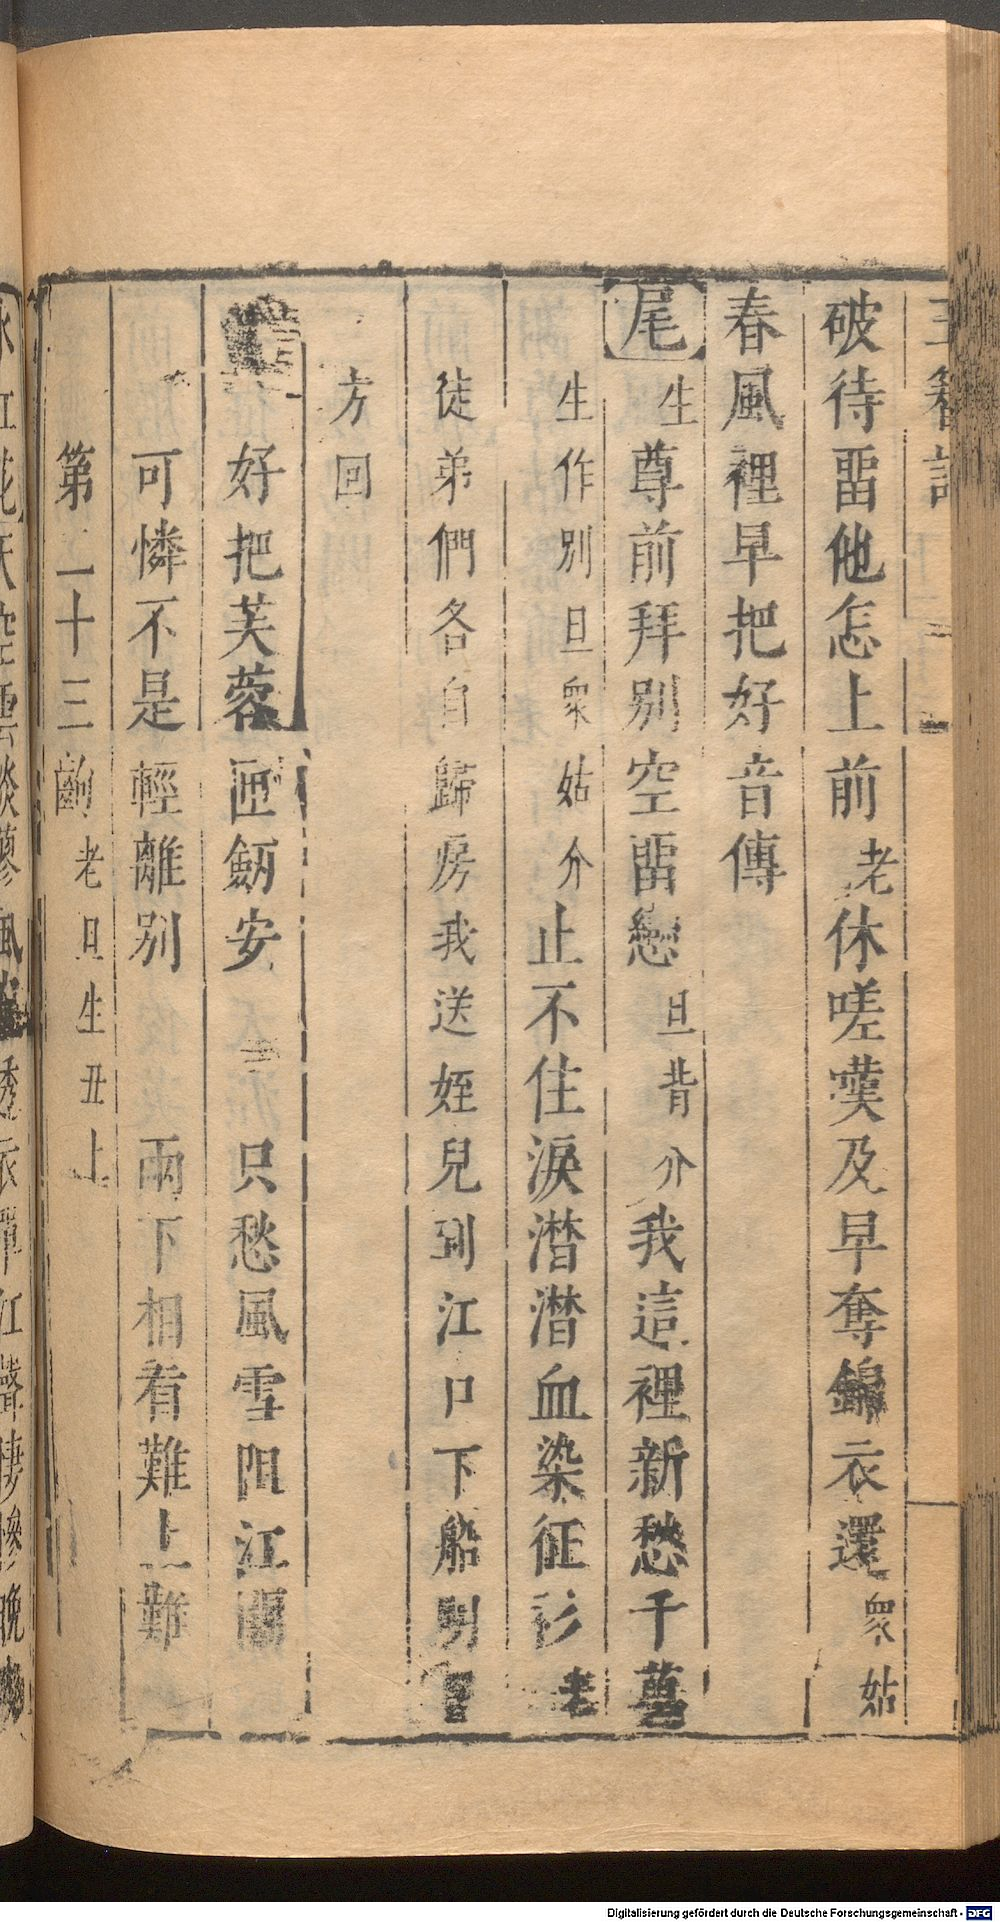 玉簪記
破待畱他怎上前老休嗟嘆及早奪錦衣還衆姑
春風裡早把好音傳
尾生尊前拜別空畱戀旦背介我這裡新愁千萬
生作別旦衆姑介止不住淚潸潸血染征衫老
徒弟們各自歸房我送姪兒到江口下船明
方回
好把芙蓉匣劒安 只愁風雪阻江關
可憐不是輕離別 兩下相看難上難
第二十三齣老旦生丑上
Digitalisierung gefördert durch die Deutsche Forschungsgemeinschaft - DFG